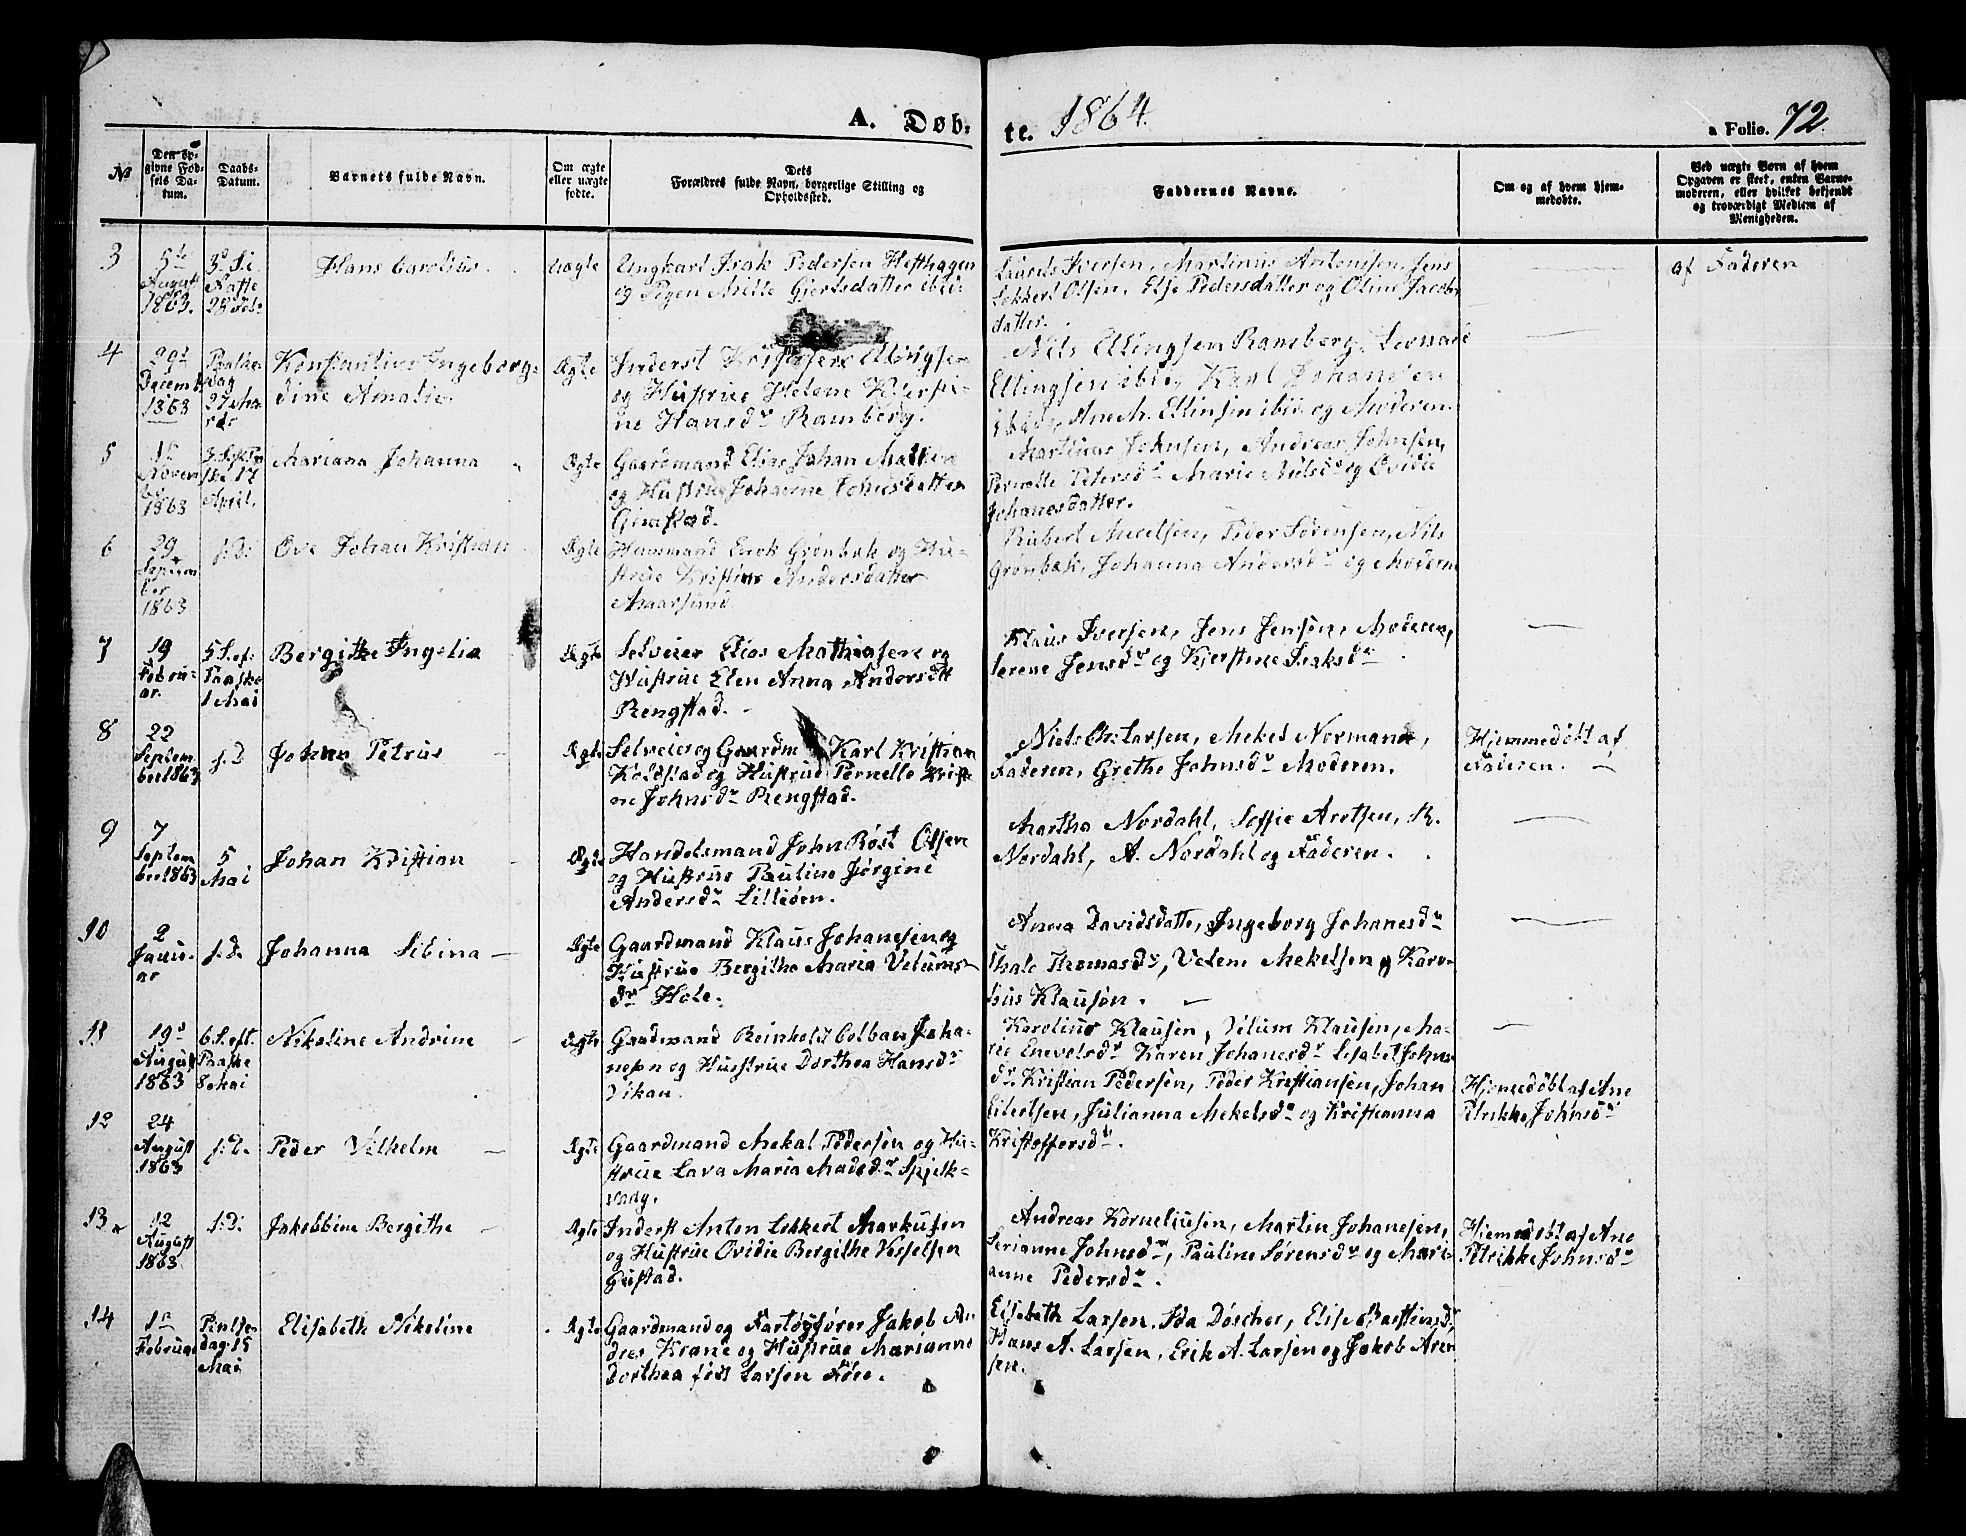 A. Døb-
te. 1864.
a Folio. 72.
No
Den opgivne Fødsels Datum.
Daabs-Datum.
Barnets fulde Navn.
Om ægte eller uægte fødte.
Dets Forældres fulde Navn, borgerlige Stilling og Opholdssted.
Faddernes Navne.
Om og af hvem hjemmedøbte.
Ved uægte Børn af hvem Opgaven er skeet, enten Barnemoderen, eller hvilket bekjendt og troværdigt Medlem af Menigheden.
3
5te August 1863.
Hans Carolius.
Uægte
Ungkarl Isak Pedersen Hefthagen
og Pigen Mille Gjertsdatter ibid.
Laurits Iversen, Martinus Antonisen, Jens
Lekkert Olsen, Else Pedersdatter og Oline Jacobs
datter.
af Faderen
4
29d Decemb 1863
Paaskedag 27 Marts
Konstantius Ingeborg-
dine Amalie
Ægte
Inderst Kristofer Ellingsen
og Hustrue Helene Kjersti-
ne Hansdr Ramberg.
Nils Ellingsen Ramberg, Leonard
Ellingsen ibid, Karl Johansen
ibid, Ane M. Ellinsen ibid og Moderen.
5
1d Novem ber 1863
17 April.
Mariana Johanna
Ægte
Gaardmand Elias Johan
og Hustrue Johanne Johnsdatter
Gimstad.
Martinus Johnsen, Andreas Johnsen,
Pernelle Petersdr Marie Nilsdr og Ovidie
Johanesdatter.
6
29 Septem ber 1863
s. D.
Ove Johan Kristian
Ægte
Huusmand Enok Grønbæk og Hu-
strue Kristine Andersdatter
Maarsund
Peder Sørensen, Nils
Grønbæk, Johanna Andersdr og Moderen
7
19 Februar.
5 S. ef: Paaske 1 Mai
Bergitte Ingelia
Ægte
Selveier Elias Mathiasen og
Hustrue Elen Anna Andersdtt
Ringstad.
Klaus Iversen, Jens Jensen, Moderen,
Lerene Jensdr og Kjerstine Isaksdr
8
22 September 1863
s. D
Johan Petrus
Ægte
Selveier og Gaardm Karl Kristian
Koldstad og Hustrue Pernelle Kristi
ne Johnsdr Ringstad.
Niels Chr Larsen, Mekel Normann,
Faderen, Grethe Johnsdr Moderen.
Hjemmedøbt af
Faderen.
9
7 September 1863
5 Mai
Johan Kristian
Ægte
Handelsmand John Røst Olsen
og Hustrue Pauline Jørgine
Andersdr Lilleøen.
Martha Nordahl, Soffie Arctsen, R.
Nordahl, A. Nordahl og Faderen.
10
2 Januar
s. d.
Johanna Sibina
Ægte
Gaardmand Klaus Johanesen og
Hustrue Bergithe Maria Velums
dr Hole.
Anna Davidsdatte, Ingeborg Johanesdr
Thale Thomasdr, Velem Mekelsen og Karo-
lius Klausen.
11
19d August 1863
6 S. eft. Paaske 8 Mai
Nikoline Andrine
Ægte
Gaadmand Reinholdt Colban Joha-
nesen og Hustrue Dorthea Hansdr
Vikan.
Karolius Klausen, Velum Klausen, Ma-
rie Enevolsdr Karen Johanesdr Lisabet Johns
dr.
12
24 August 1863
s. D.
Peder Vilhelm
Ægte
Gaardmand Mekal Pedersen og Hu-
strue Lava Maria Madsdr Spjelk-
vaag.
Kristian Pedersen, Peder Kristiansen, Johan
Eilertsen, Julianna Mekelsdr og Kristianna
Kristoffersdr.
Hjemmedøbt af Ane
Petrikke Johnsdr
13
12 August 1863
s: D.
Jakobbine Bergithe
Ægte
Inderst Anton Lekkert Markusen
og Hustrue Ovidie Bergithe Vesselsen
Gustad.
Andreas Korneliusen, Martin Johanesen,
Serianne Johnsdr, Pauline Sørensdr og Mari-
anne Pedersdr.
Hjemmedøbt af Ane
Petrikke Johnsdr
14
1d Februar
Pintsedag 15 Mai
Elisabeth Nikoline
Ægte
Gaardmand og Fartøyfører Jakob An
dres Krane og Hustrue Marianne
Dorthea født Larsen Føre.
Elisabeth Larsen, Ida Døscher, Elise Bastiansdr
Hans A. Larsen, Erik A. Larsen og Jakob Aren
sen.